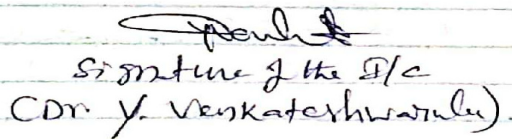 Signature of the I/c
(Dr. Y. Venkateshwarulu).